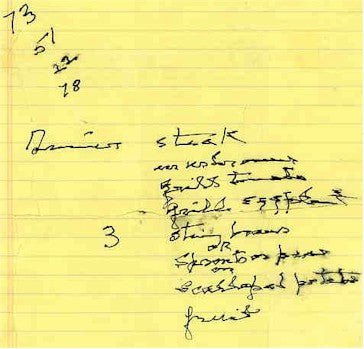 73
51
22
78
Dinner steak
mushrooms
grill tomato
grill eggplant
3 string beans
or
spinach or peas
or
scalloped potato
fruit